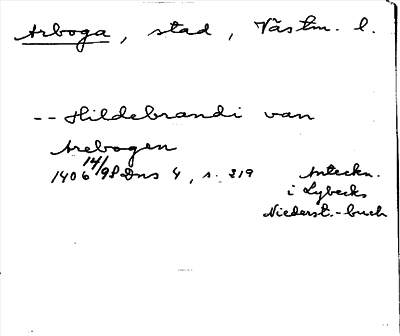 Arboga, stad, Västm. l.
-- Hildebrandi van
Arebogen
1406 14/9 SDns 4, s. 319
Anteckn.
i Lybecks
Niederst.-buch